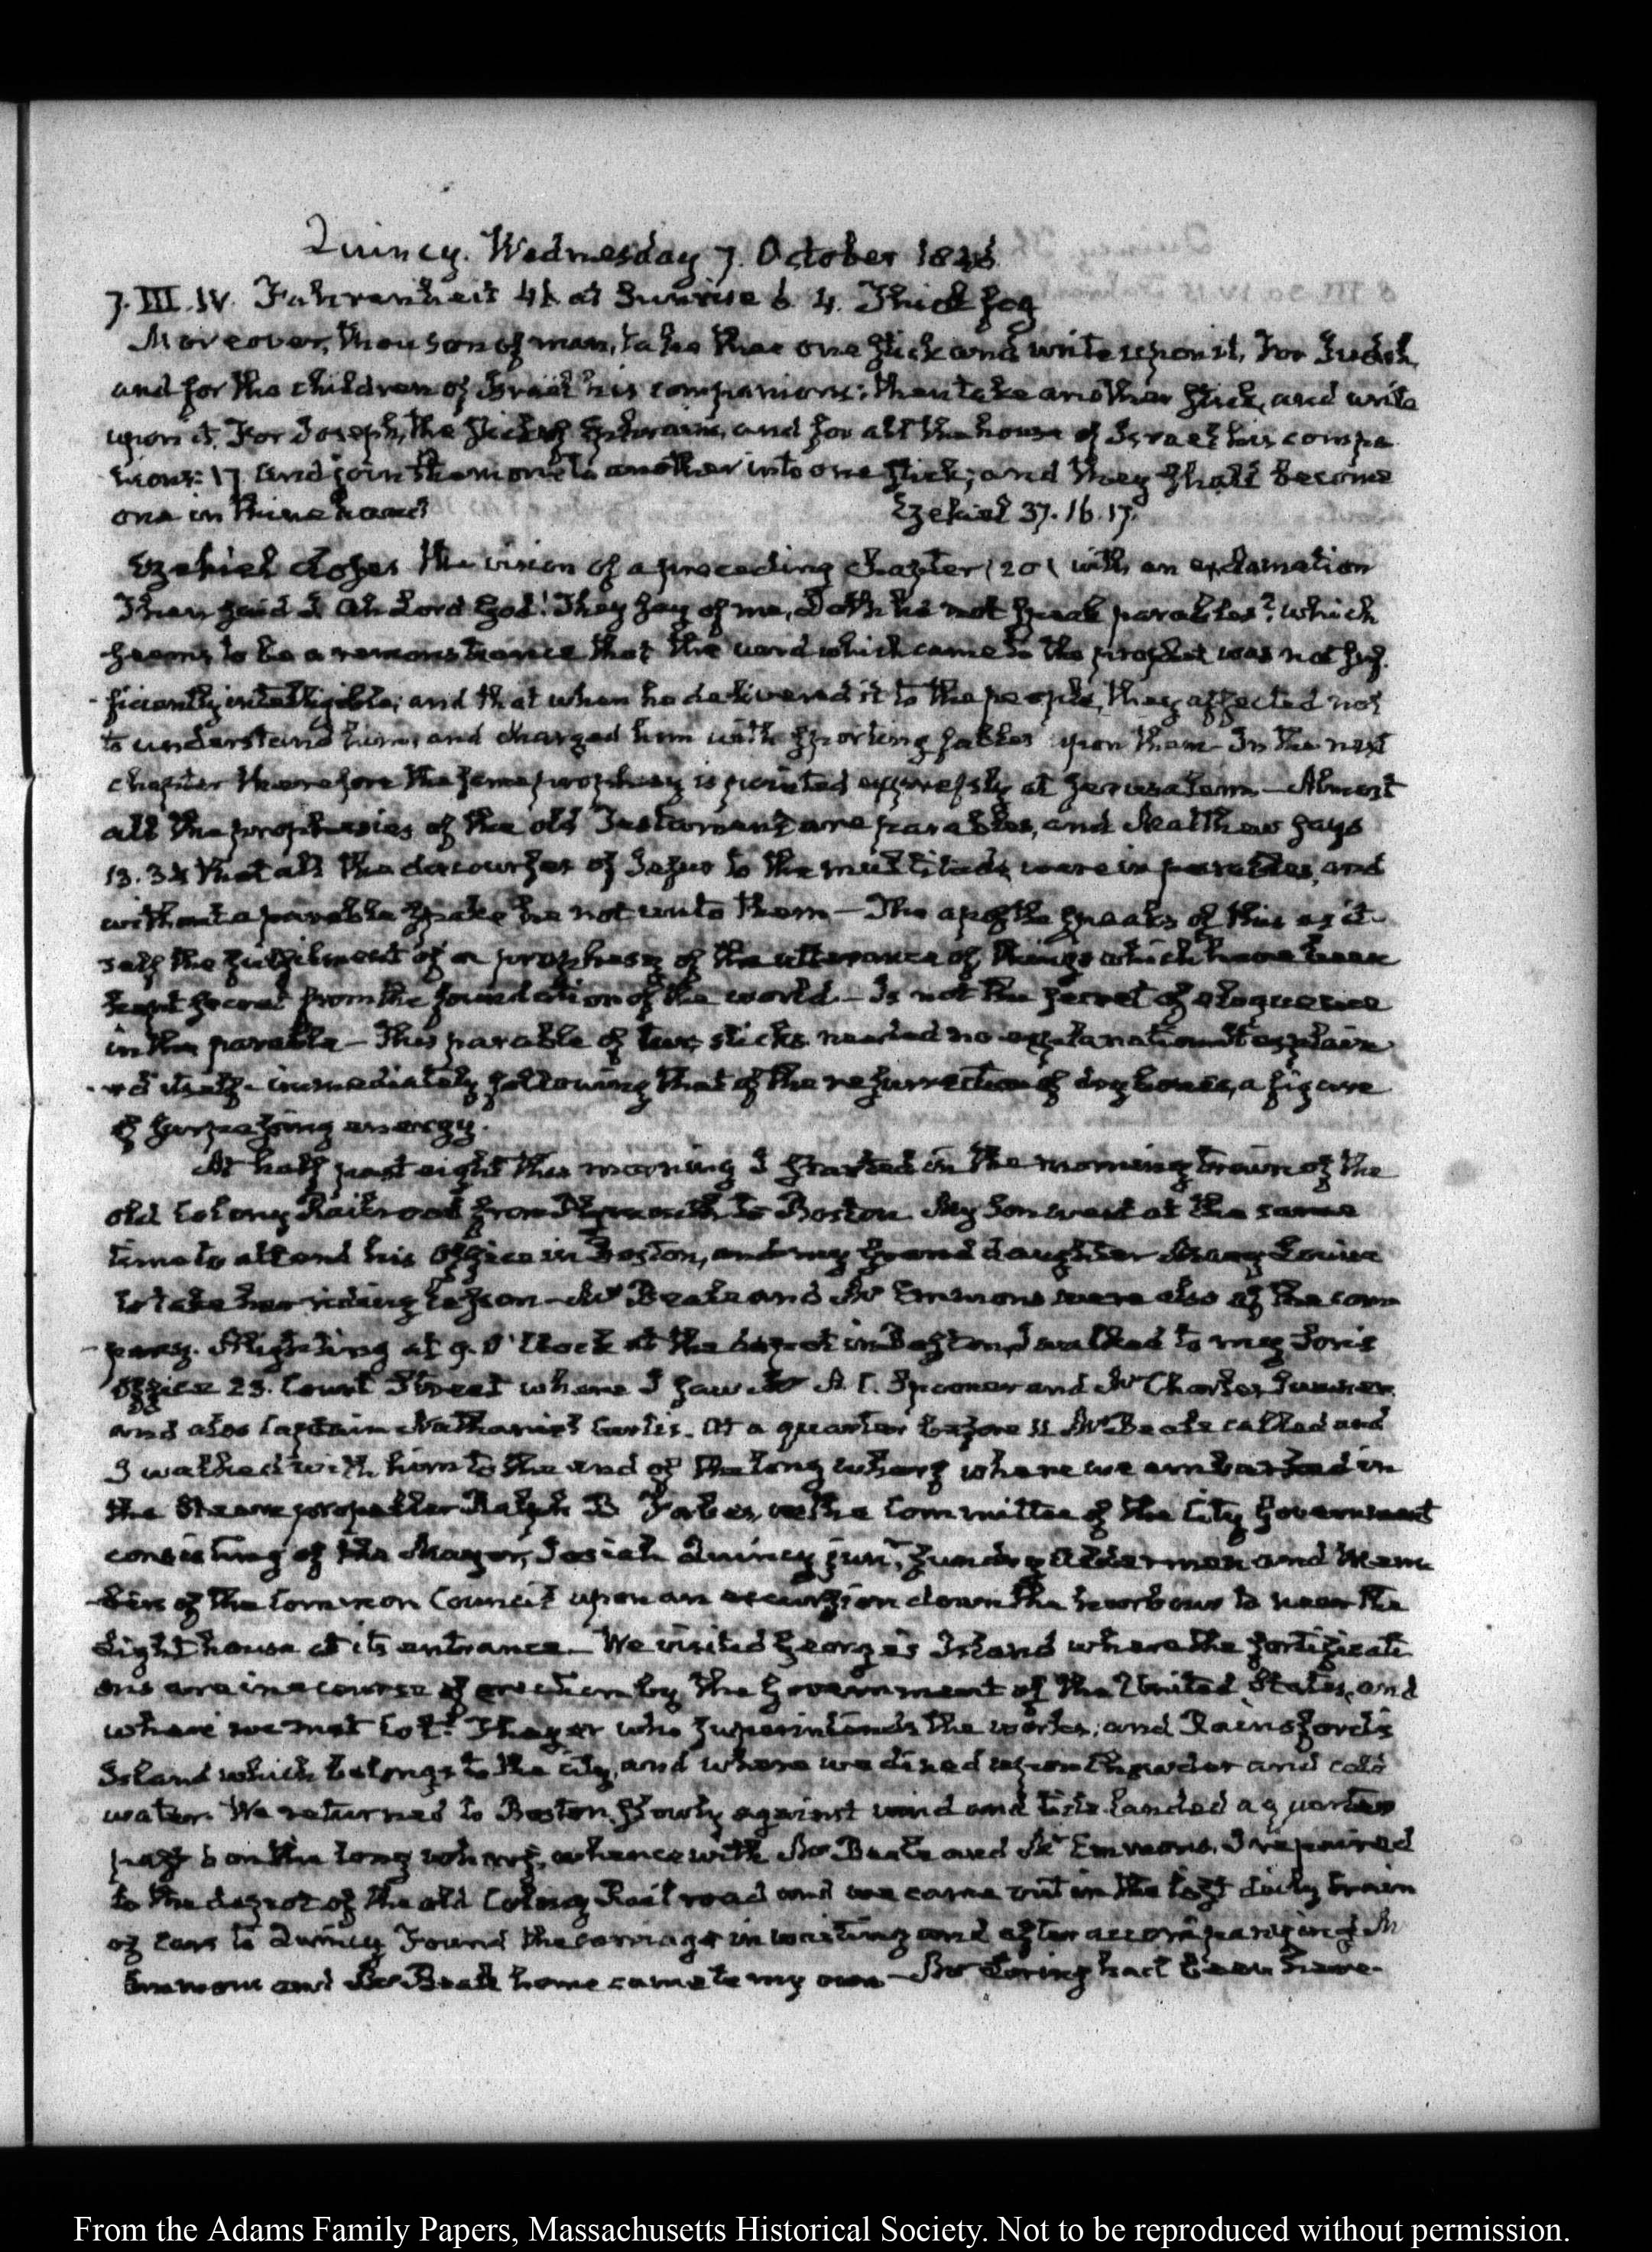 Quincy. Wednesday 7. October 1846
7. III. IV. Fahrenheit 41. at Sunrise 6. 4. Thick fog
Moreover, thou son of man, take thee one stick and write upon it, For Judah,
and for the children of Israel his companions: then take another stick, and write
upon it, For Joseph, the stick of Ephraim, and for all the house of Israel his compa
nions: 17 And join them one to another into one stick; and they shall become
one in thine hand
Ezekiel 37. 16. 17.
Ezekiel closes the vision of a preceding Chapter (20) with an exclamation
Then said I Ah Lord God! They say of me, Doth he not speak parables? which
seems to be a remonstrance that the word which came to the prophet was not suf-
-ficiently intelligible; and that when he delivered it to the people, they affected not
to understand him, and charged him with sporting fables upon them. In the next
chapter therefore the same prophecy is pointed expressly at Jerusalem — Almost
all the prophesies of the old Testament are parables, and Matthew says
13. 34 that all the discourses of Jesus to the multitude were in parables, and
without a parable spake he not unto them — The apostle speaks of this as it
self the fulfilment of a prophesy of the utterance of things which have been
kept secret from the foundation of the world — Is not the secret of eloquence
in the parable — This parable of two sticks needed no explanation it explain
-ed itself — immediately following that of the resurrection of dry bones, a figure
of surpassing energy.
At half past eight this morning I started in the morning train of the
old Colony Railroad from Plymouth to Boston. My Son went at the same
time to attend his Office in Boston, and my grand daughter Mary Louisa
to take her riding lesson — Mr Beale and Mr Emmons were also of the com
-pany. Alighting at 9. O'Clock at the depot in Boston, I walked to my Son's
Office 23. Court Street where I saw Mr A. C. Spooner and Mr Charles Sumner
and also Captain Nathaniel Curtis. At a quarter before 11 Mr Beale called and
I walked with him to the end of the long wharf where we embarked in
the Steam propeller Ralph B Forbes, with the Committee of the City Government
consisting of the Mayor, Josiah Quincy junr, sundry Aldermen and Mem
-bers of the Common Council upon an excursion down the harbour to near the
Light house at its entrance — We visited George's Island where the fortificati
ons are in a course of erection by the Government of the United States, and
where we met Colt. Thayer who superintends the works; and Rainsford's
Island which belongs to the city, and where we dined upon Chowder and cold
water. We returned to Boston slowly against wind and tide landed a quarter
past 6 on the long wharf, whence with Mr Beale and Mr Emmons, I repaired
to the depot of the old Colony Railroad and we came out in the last daily train
of Cars to Quincy Found the carriage in waiting and after accompanying Mr
Emmons and Mr Beale home came to my own — Mr Loring had been here.
From the Adams Family Papers, Massachusetts Historical Society. Not to be reproduced without permission.